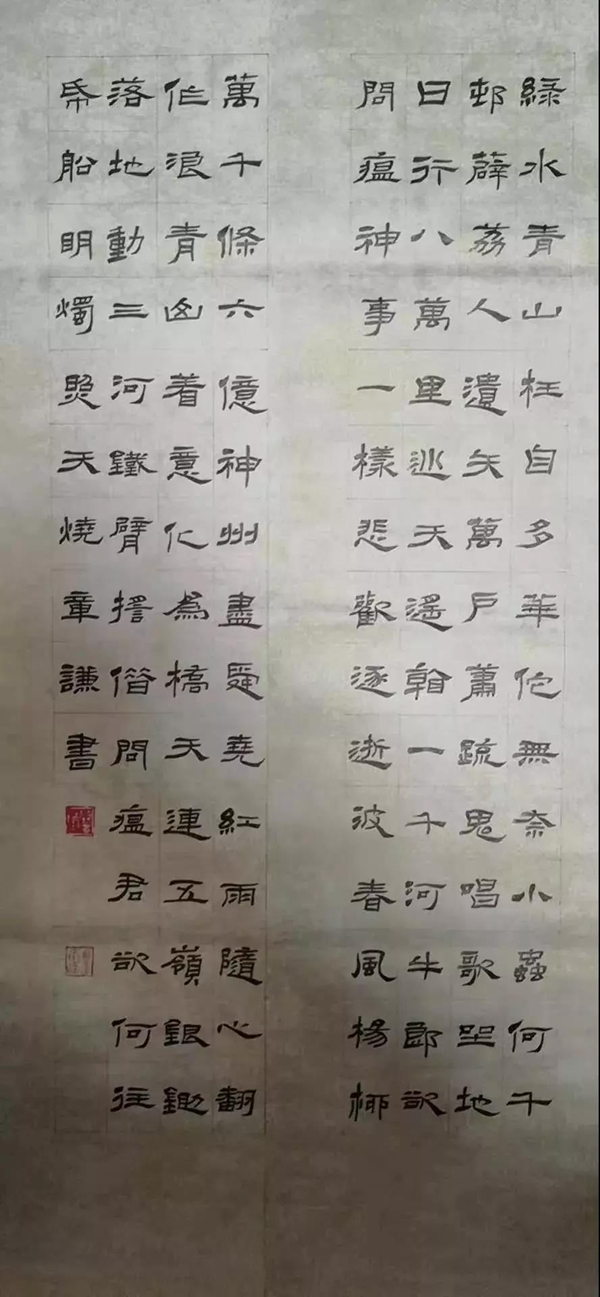 綠水青山枉自多華佗無奈小蟲何千
邨薜荔人遺矢萬戶蕭疏鬼唱歌坐地
日行八萬里巡天遙看一千河牛郎欲
問瘟神事一樣悲歡逐逝波春風楊柳
萬千條六億神州盡舜堯紅雨隨心翻
作浪青山着意化為橋天連五嶺銀鋤
落地動三河鐵臂搖借問瘟君欲何往
帋船明燭照天燒章謙書